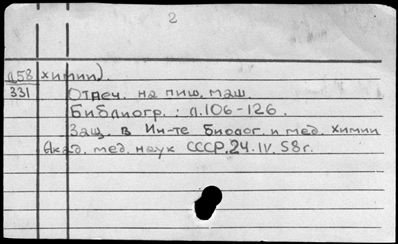 2
д58 химии).
331 Отпеч. на пиш. маш.
Библиогр.: л.106-126.
Защ. в Ин-те Биолог. и мед. химии
Акад. мед. наук СССР.24.IV.58г.